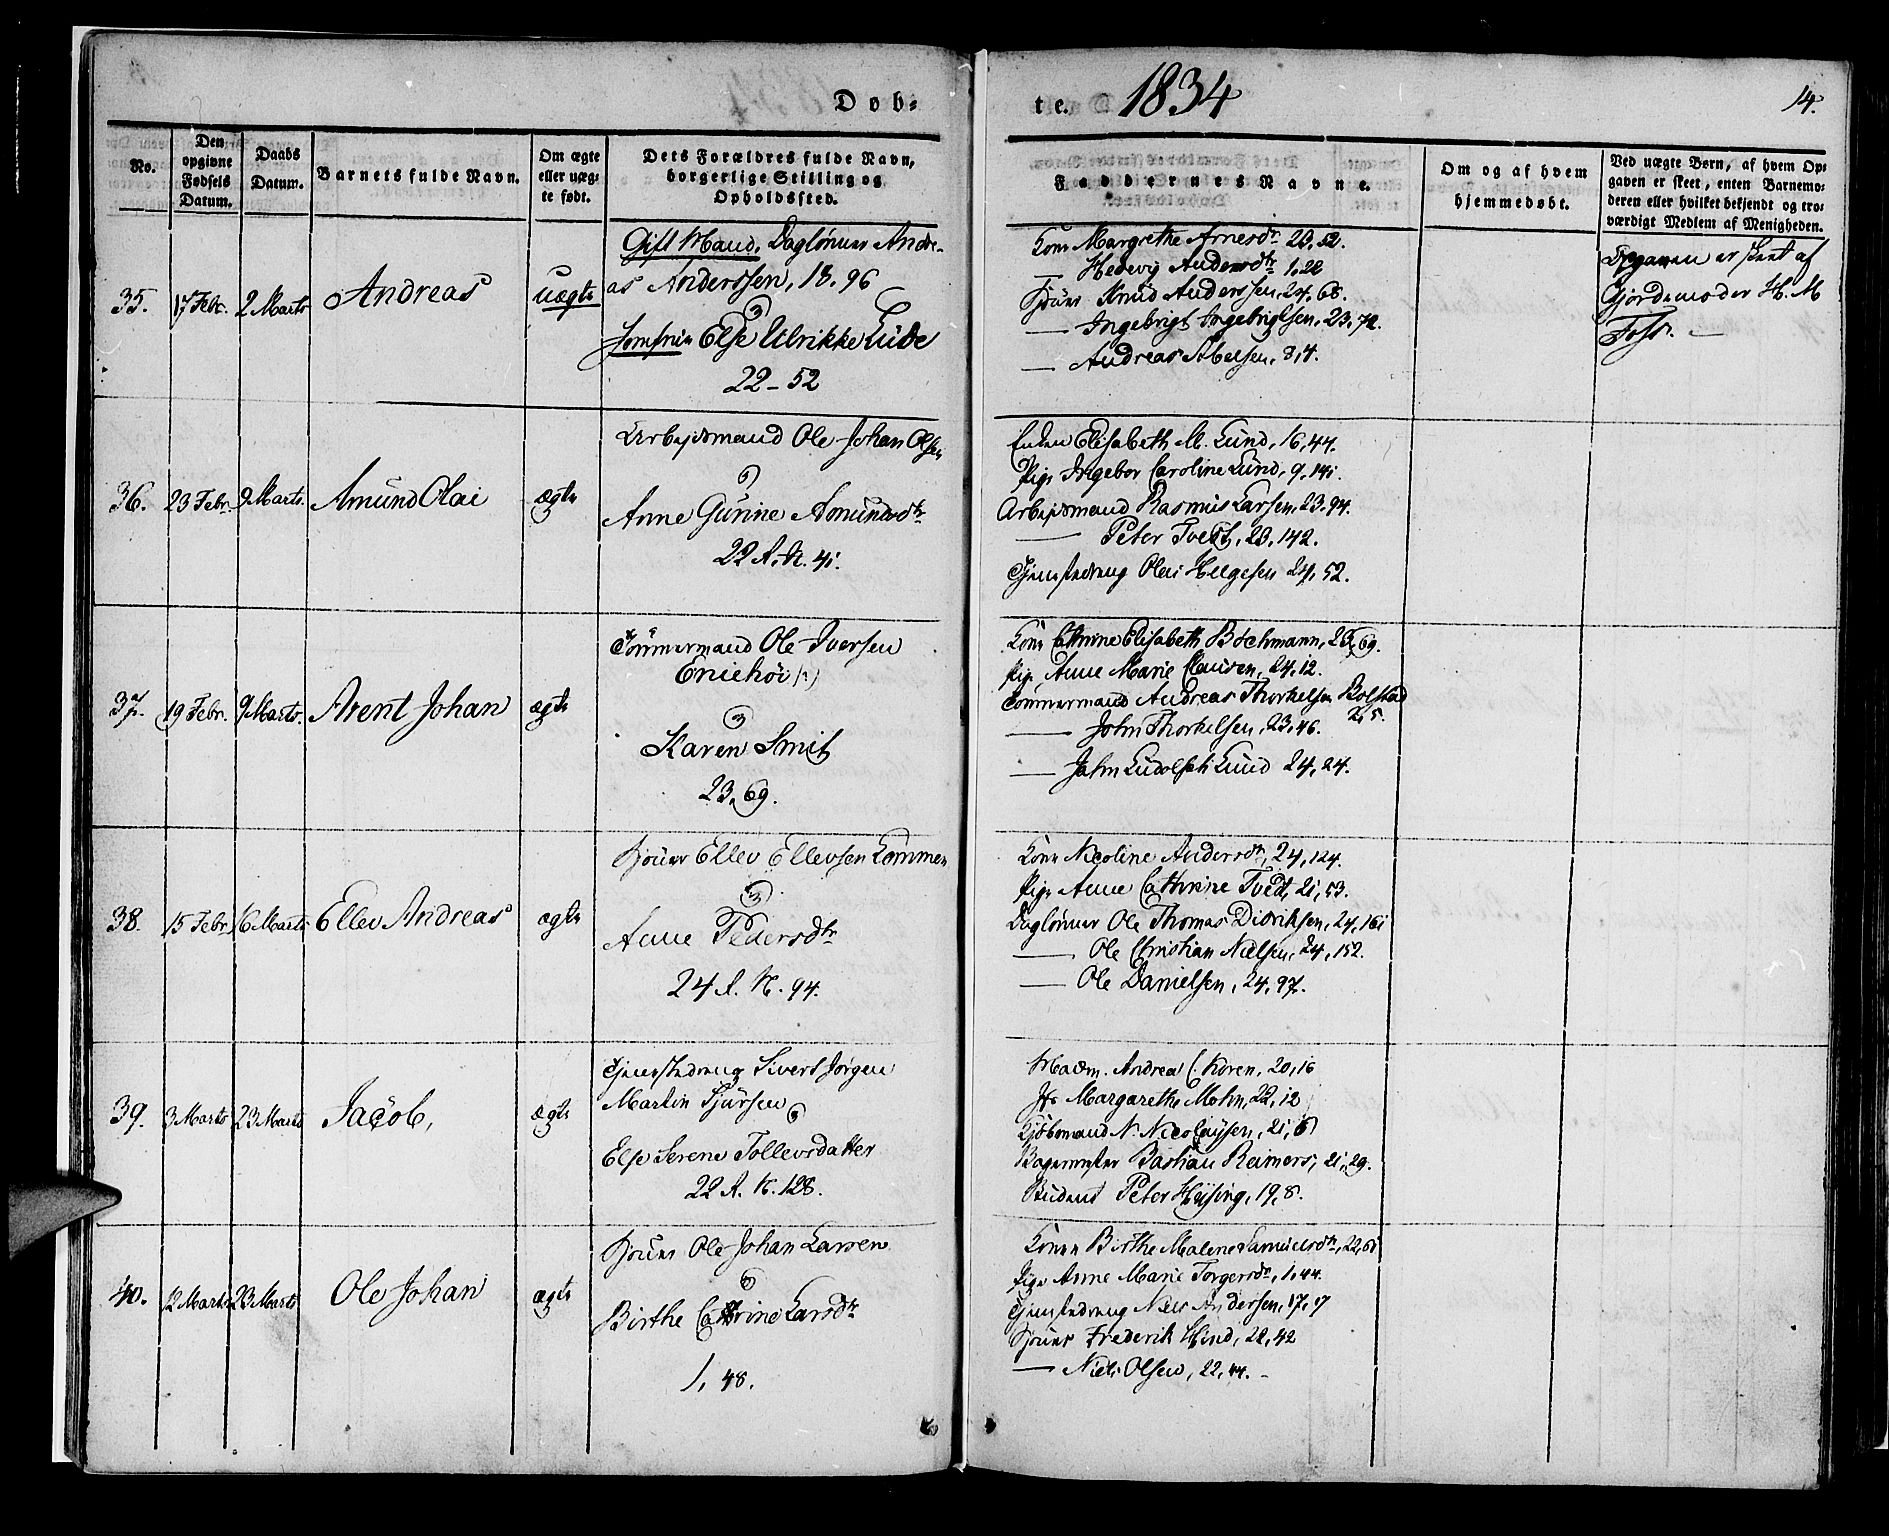 Døb-
te.
1834
14.
No.
Den opgivne Fødsels Datum.
Daabs Datum.
Barnets fulde Navn.
Om ægte eller uæg-te født.
Dets Forældres fulde Navn, borgerlige Stilling og Opholdssted.
Faddernes Navne.
Om og af hvem hjemmedøbt.
Ved uægte Børn, af hvem Op-gaven er skeet, enten Barnemo-deren eller hvilket bekjendt og tro-værdigt Medlem af Menigheden.
35.
17 Febr.
2 Marts
Andreas
uægte
Gift Mand, Daglønner Andre-
as Anderssen, 13. 96
Jomfrue Else Ulrikke
22-52
Kone Margrethe Arnesdr 23,52.
— Hedevig Andersdtr 1,22
Knud Anderssen, 24,68.
— Ingebrigt Ingebrigtsen, 23,72.
— Andreas Abelsen, 8,4.
Opgaven er skeet af
Gjordemoder H. M
36.
23 Febr.
9 Marts.
Amund Olai
ægte
Arbeidsmand Ole Johan Olsen
Anne Gurine Amundsdtr
22 A. K. 41.
Enken Elisabeth M. Lund, 16,44.
Pige Ingebor Caroline Lund, 9,141.
Arbeidsmand Rasmus Larsen, 23.94.
— Peter Tvedt, 23,142.
Tjenestedreng Olai Helgesen 24,52.
37.
19 Febr.
9 Marts.
Arent Johan
ægte
Tømmermand Ole Iversen
Karen Smit
23,69.
Kone Cathrine Elisabeth Bochmann, 23,69.
Pige Anne Marie Clausen, 24,12.
Tømmermand Andreas Thorkelsen Bolstad
2,5.
— John Thorkelsen, 23,46.
— John Ludolph Lund 24,24.
38.
15 Febr.
16 Marts
Ellev Andreas
ægte
Ellev Ellevsen Lommen
Anne Pedersdtr
24 A. K. 94.
Kone Nicoline Andersdtr, 24,124.
Pige Anne Cathrine Tvedt, 21,53.
Daglønner Ole Thomas Didriksen, 24,161
— Ole Christian Nielsen, 24,152.
— Ole Danielsen, 24,97.
39.
3 Marts
23 Marts
Jacob,
ægte
Tjenestedreng Sivert Jørgen
Martin
Else Serene Tollevsdatter
22 A. K. 128.
Madm. Andrea C. Koren, 20,16
Jfr Margarethe Mohn, 22,12
Kjøbmand N. Nicolaysen, 21,6
Bagermester Bastian Reimers, 21,29.
Student Peter Heising, 19,8.
40.
12 Marts
23 Marts
Ole Johan
ægte
Ole Johan Larsen
Birthe Cathrine Larsdtr
1, 48.
Konen Birthe Malene Samuelsdtr, 22,61
Pige Anne Marie Torgersdr, 1,44.
Tjenestedreng Niels Andersen, 17,17
Frederik Hind, 22,42
— Niels Olsen, 22,44. -